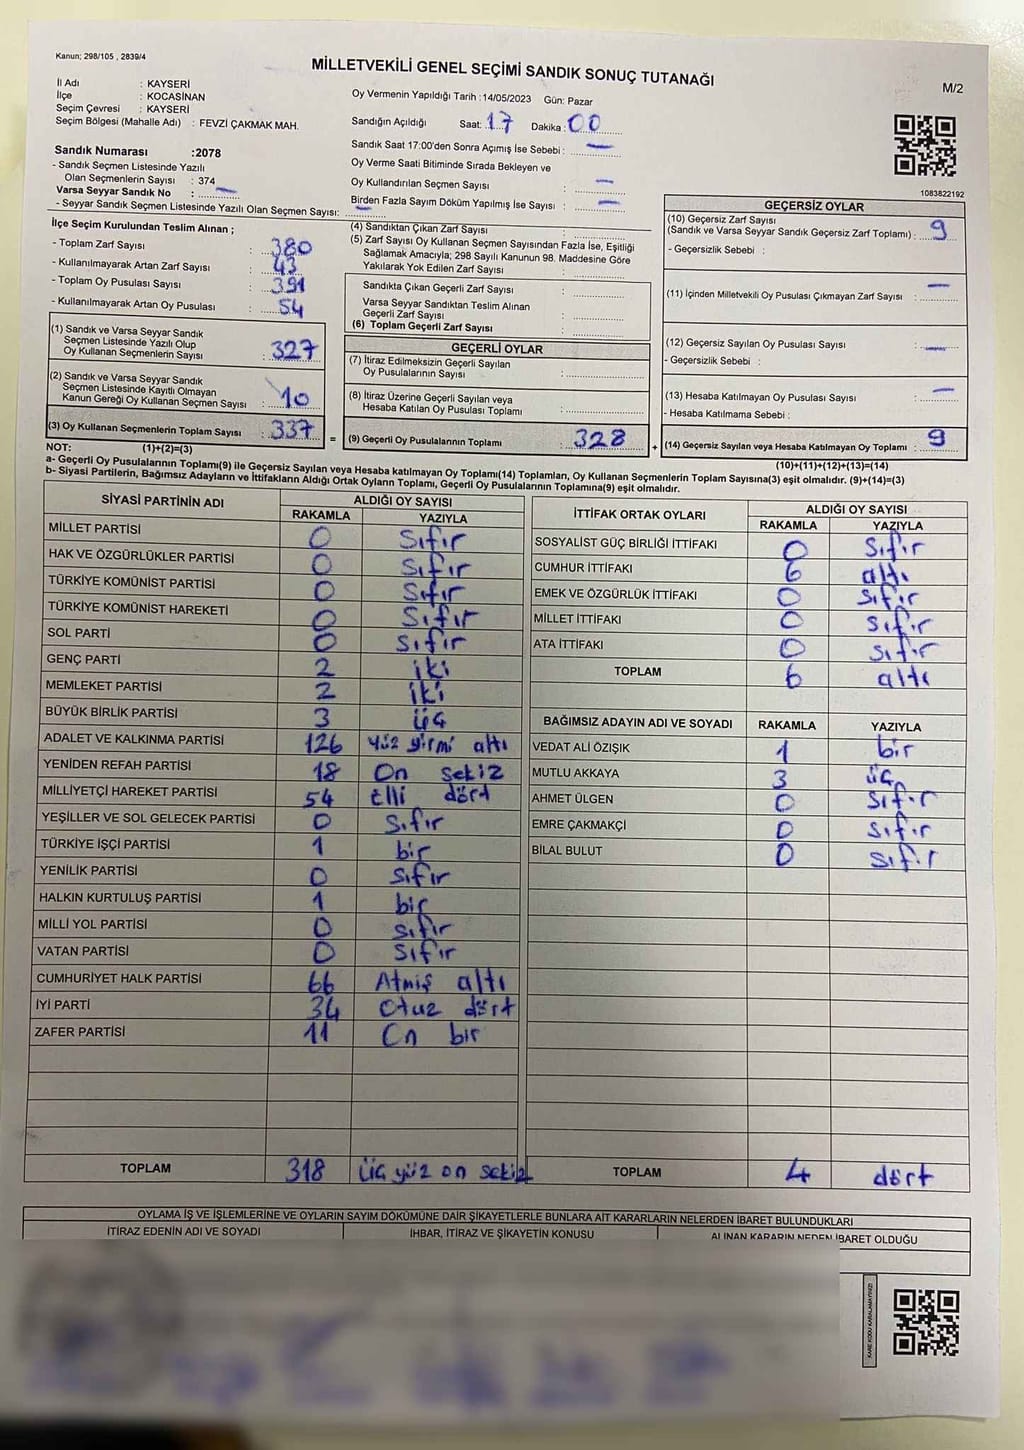 Kanun; 298/105 , 2839/4
MİLLETVEKİLİ GENEL SEÇİMİ SANDIK SONUÇ TUTANAĞI
M/2
İl Adı : KAYSERİ
İlçe : KOCASİNAN
Seçim Çevresi : KAYSERİ
Seçim Bölgesi (Mahalle Adı) : FEVZİ ÇAKMAK MAH.
Oy Vermenin Yapıldığı Tarih :14/05/2023 Gün: Pazar
Sandığın Açıldığı Saat: 17 Dakika : 00
Sandık Saat 17:00'den Sonra Açımış İse Sebebi : —
Oy Verme Saati Bitiminde Sırada Bekleyen ve
Oy Kullandırılan Seçmen Sayısı : —
Birden Fazla Sayım Döküm Yapılmış İse Sayısı : —
Sandık Numarası :2078
- Sandık Seçmen Listesinde Yazılı
Olan Seçmenlerin Sayısı : 374
Varsa Seyyar Sandık No : —
- Seyyar Sandık Seçmen Listesinde Yazılı Olan Seçmen Sayısı: —
1083822192
İlçe Seçim Kurulundan Teslim Alınan ;
- Toplam Zarf Sayısı : 380
- Kullanılmayarak Artan Zarf Sayısı : 43
- Toplam Oy Pusulası Sayısı : 391
- Kullanılmayarak Artan Oy Pusulası : 54
(1) Sandık ve Varsa Seyyar Sandık
Seçmen Listesinde Yazılı Olup
Oy Kullanan Seçmenlerin Sayısı : 327
(2) Sandık ve Varsa Seyyar Sandık
Seçmen Listesinde Kayıtlı Olmayan
Kanun Gereği Oy Kullanan Seçmen Sayısı : 10
(3) Oy Kullanan Seçmenlerin Toplam Sayısı : 337
(4) Sandıktan Çıkan Zarf Sayısı :
(5) Zarf Sayısı Oy Kullanan Seçmen Sayısından Fazla İse, Eşitliği
Sağlamak Amacıyla; 298 Sayılı Kanunun 98. Maddesine Göre
Yakılarak Yok Edilen Zarf Sayısı :
Sandıkta Çıkan Geçerli Zarf Sayısı :
Varsa Seyyar Sandıktan Teslim Alınan
Geçerli Zarf Sayısı :
(6) Toplam Geçerli Zarf Sayısı :
GEÇERLİ OYLAR
(7) İtiraz Edilmeksizin Geçerli Sayılan
Oy Pusulalarının Sayısı :
(8) İtiraz Üzerine Geçerli Sayılan veya
Hesaba Katılan Oy Pusulası Toplamı :
= (9) Geçerli Oy Pusulalarının Toplamı : 328
GEÇERSİZ OYLAR
(10) Geçersiz Zarf Sayısı
(Sandık ve Varsa Seyyar Sandık Geçersiz Zarf Toplamı) : 9
- Geçersizlik Sebebi :
(11) İçinden Milletvekili Oy Pusulası Çıkmayan Zarf Sayısı : —
(12) Geçersiz Sayılan Oy Pusulası Sayısı : —
- Geçersizlik Sebebi :
(13) Hesaba Katılmayan Oy Pusulası Sayısı : —
- Hesaba Katılmama Sebebi :
+ (14) Geçersiz Sayılan veya Hesaba Katılmayan Oy Toplamı : 9
NOT: (1)+(2)=(3)
(10)+(11)+(12)+(13)=(14)
a- Geçerli Oy Pusulalarının Toplamı(9) ile Geçersiz Sayılan veya Hesaba katılmayan Oy Toplamı(14) Toplamları, Oy Kullanan Seçmenlerin Toplam Sayısına(3) eşit olmalıdır. (9)+(14)=(3)
b- Siyasi Partilerin, Bağımsız Adayların ve İttifakların Aldığı Ortak Oyların Toplamı, Geçerli Oy Pusulalarının Toplamına(9) eşit olmalıdır.
SİYASİ PARTİNİN ADI ALDIĞI OY SAYISI
RAKAMLA YAZIYLA
MİLLET PARTİSİ 0 Sıfır
HAK VE ÖZGÜRLÜKLER PARTİSİ 0 Sıfır
TÜRKİYE KOMÜNİST PARTİSİ 0 Sıfır
TÜRKİYE KOMÜNİST HAREKETİ 0 Sıfır
SOL PARTİ 0 Sıfır
GENÇ PARTİ 2 iki
MEMLEKET PARTİSİ 2 iki
BÜYÜK BİRLİK PARTİSİ 3 üç
ADALET VE KALKINMA PARTİSİ 126 Yüz yirmi altı
YENİDEN REFAH PARTİSİ 18 On sekiz
MİLLİYETÇİ HAREKET PARTİSİ 54 Elli dört
YEŞİLLER VE SOL GELECEK PARTİSİ 0 Sıfır
TÜRKİYE İŞÇİ PARTİSİ 1 bir
YENİLİK PARTİSİ 0 Sıfır
HALKIN KURTULUŞ PARTİSİ 1 bir
MİLLİ YOL PARTİSİ 0 Sıfır
VATAN PARTİSİ 0 Sıfır
CUMHURİYET HALK PARTİSİ 66 Atmış altı
İYİ PARTİ 34 Otuz dört
ZAFER PARTİSİ 11 On bir
TOPLAM 318 Üç yüz on sekiz
İTTİFAK ORTAK OYLARI ALDIĞI OY SAYISI
RAKAMLA YAZIYLA
SOSYALİST GÜÇ BİRLİĞİ İTTİFAKI 0 Sıfır
CUMHUR İTTİFAKI 6 altı
EMEK VE ÖZGÜRLÜK İTTİFAKI 0 Sıfır
MİLLET İTTİFAKI 0 Sıfır
ATA İTTİFAKI 0 Sıfır
TOPLAM 6 altı
BAĞIMSIZ ADAYIN ADI VE SOYADI RAKAMLA YAZIYLA
VEDAT ALİ ÖZIŞIK 1 bir
MUTLU AKKAYA 3 üç
AHMET ÜLGEN 0 Sıfır
EMRE ÇAKMAKÇİ 0 Sıfır
BİLAL BULUT 0 Sıfır
TOPLAM 4 dört
OYLAMA İŞ VE İŞLEMLERİNE VE OYLARIN SAYIM DÖKÜMÜNE DAİR ŞİKAYETLERLE BUNLARA AİT KARARLARIN NELERDEN İBARET BULUNDUKLARI
İTİRAZ EDENİN ADI VE SOYADI İHBAR, İTİRAZ VE ŞİKAYETİN KONUSU ALINAN KARARIN NEDEN İBARET OLDUĞU
KARE KODU KARALAMAYINIZ!